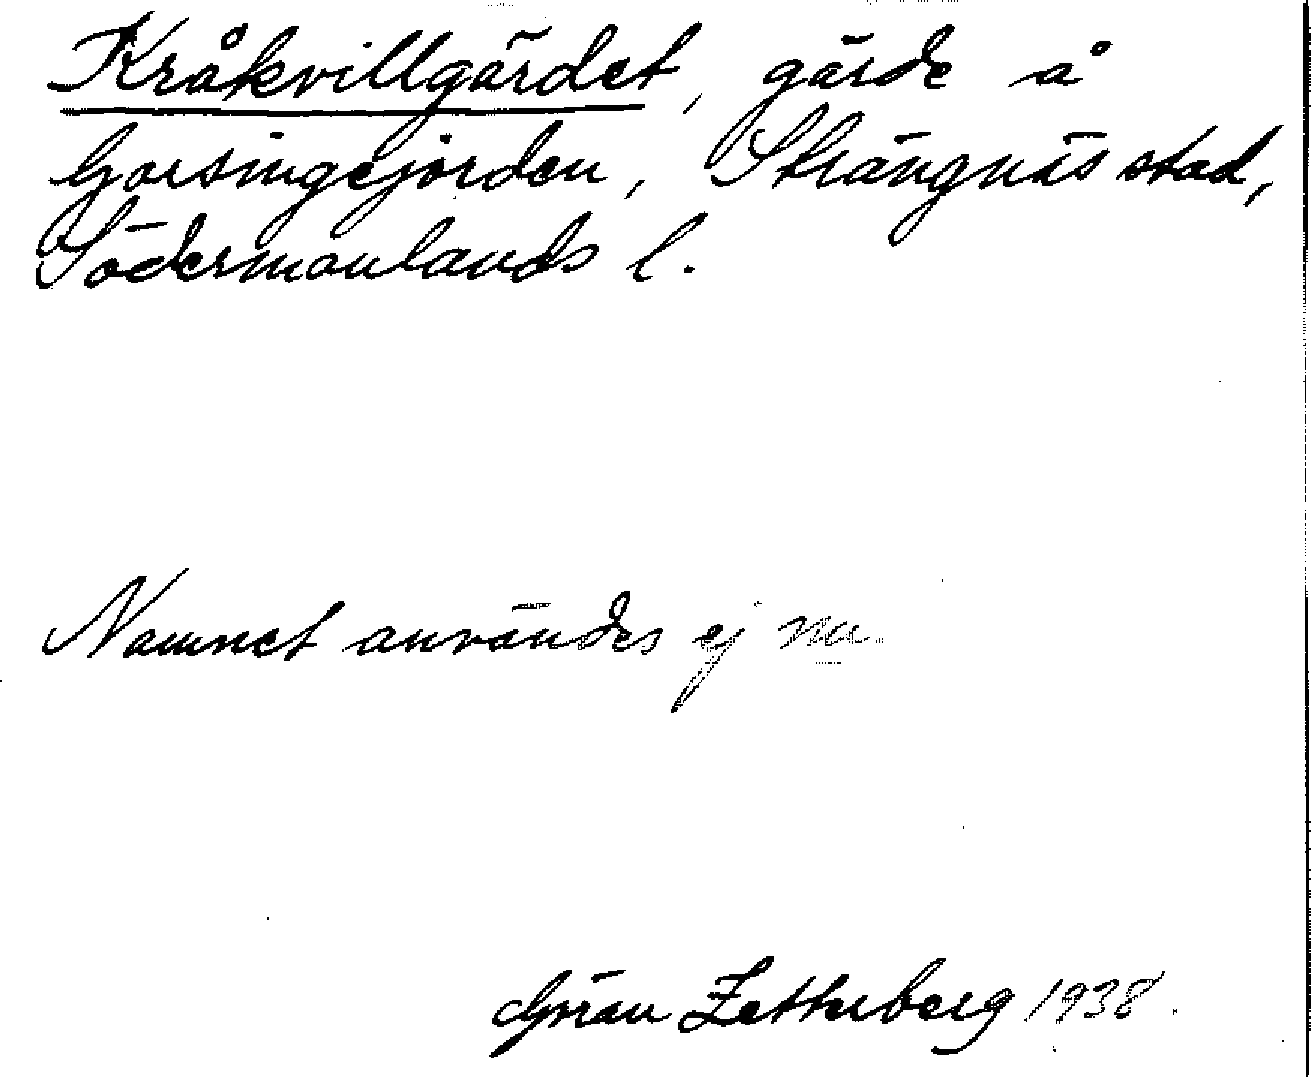 Kråkvillgärdet, gärde å
Gorsingejorden, Strängnäs stad,
Södermanlands l.
Namnet användes ej nu.
Göran Zetterberg 1938.